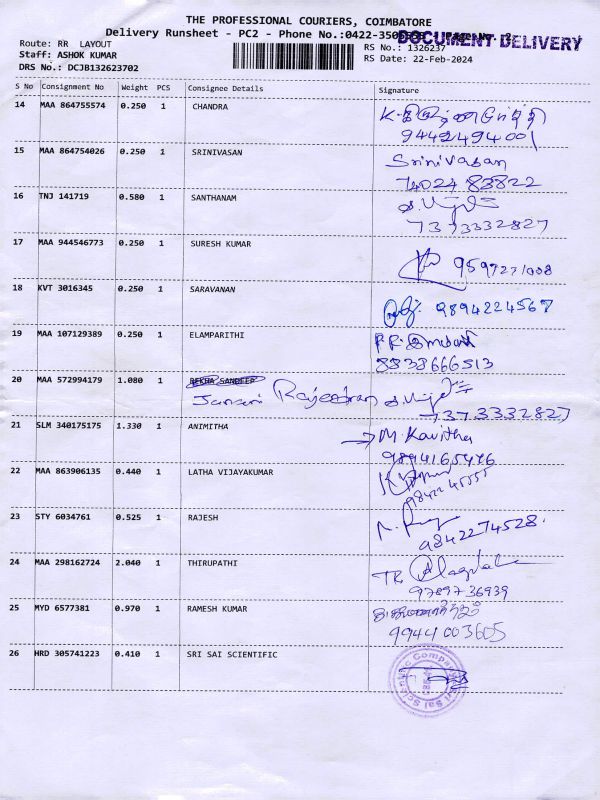 THE PROFESSIONAL COURIERS, COIMBATORE
Delivery Runsheet - PC2 - Phone No.:0422-350
DOCUMENT DELIVERY
Route: RR LAYOUT
RS No.: 1326237
Staff: ASHOK KUMAR
RS Date: 22-Feb-2024
DRS No.: DCJB132623702
S No Consignment No Weight PCS Consignee Details Signature
14 MAA 864755574 0.250 1 CHANDRA
9442494001
15 MAA 864754026 0.250 1 SRINIVASAN Srinivasan
7402483822
16 TNJ 141719 0.580 1 SANTHANAM
7373332827
17 MAA 944546773 0.250 1 SURESH KUMAR
9597271008
18 KVT 3016345 0.250 1 SARAVANAN 9894224567
19 MAA 107129389 0.250 1 ELAMPARITHI
8838666513
20 MAA 572994179 1.080 1 REKHA SANDEEP
Rajendran
7373332827
21 SLM 340175175 1.330 1 ANIMITHA → M. Kavitha
9894165476
22 MAA 863906135 0.440 1 LATHA VIJAYAKUMAR
9842245555
23 STY 6034761 0.525 1 RAJESH
9842274528.
24 MAA 298162724 2.040 1 THIRUPATHI
9789736939
25 MYD 6577381 0.970 1 RAMESH KUMAR
9944003605
26 HRD 305741223 0.410 1 SRI SAI SCIENTIFIC
Sri Sai Scientific Company